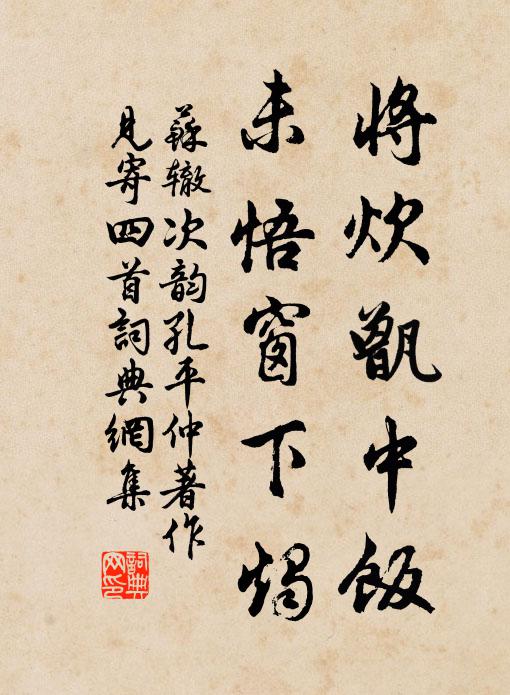 将炊甑中飯
未悟窗下燭
蘇辙次韵孔平仲著作
見寄四首詞典網集
詞典网印